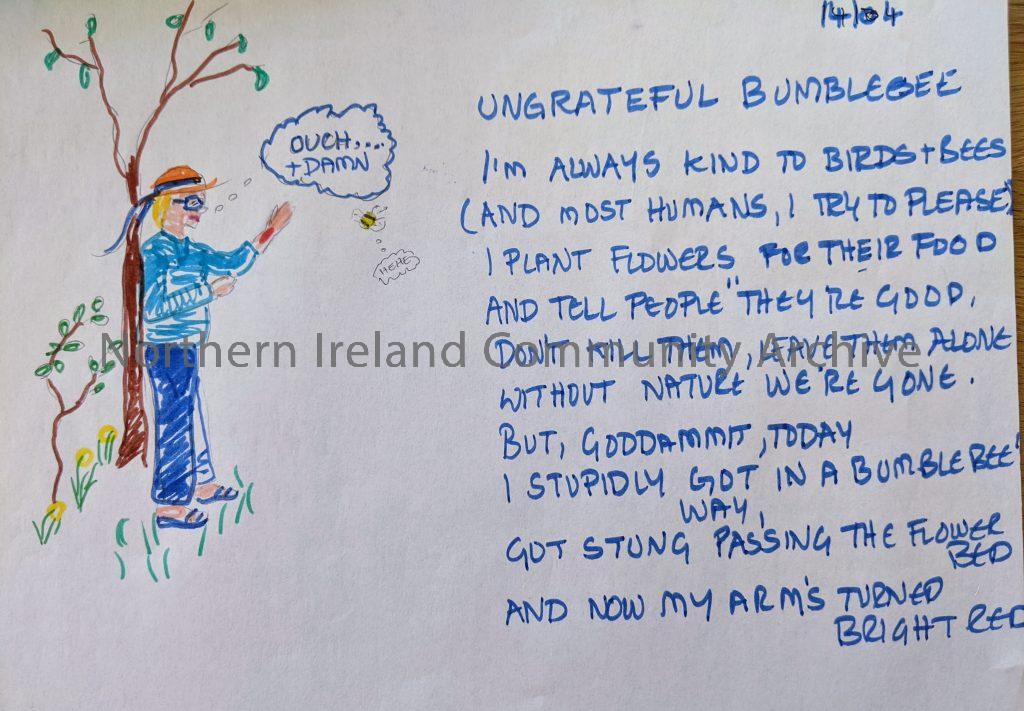 14/04
UNGRATEFUL BUMBLEBEE
OUCH,...
+DAMN
HEHE
I'M ALWAYS KIND TO BIRDS+BEES
(AND MOST HUMANS, I TRY TO PLEASE)
I PLANT FLOWERS FOR THEIR FOOD
AND TELL PEOPLE "THEY'RE GOOD,
DON'T KILL THEM, LEAVE THEM ALONE
WITHOUT NATURE WE'RE GONE.
BUT, GODDAMMIT, TODAY
I STUPIDLY GOT IN A BUMBLEBEE'
WAY,
GOT STUNG PASSING THE FLOWER
BED
AND NOW MY ARM'S TURNED
BRIGHT RED
Northern Ireland Community Archive